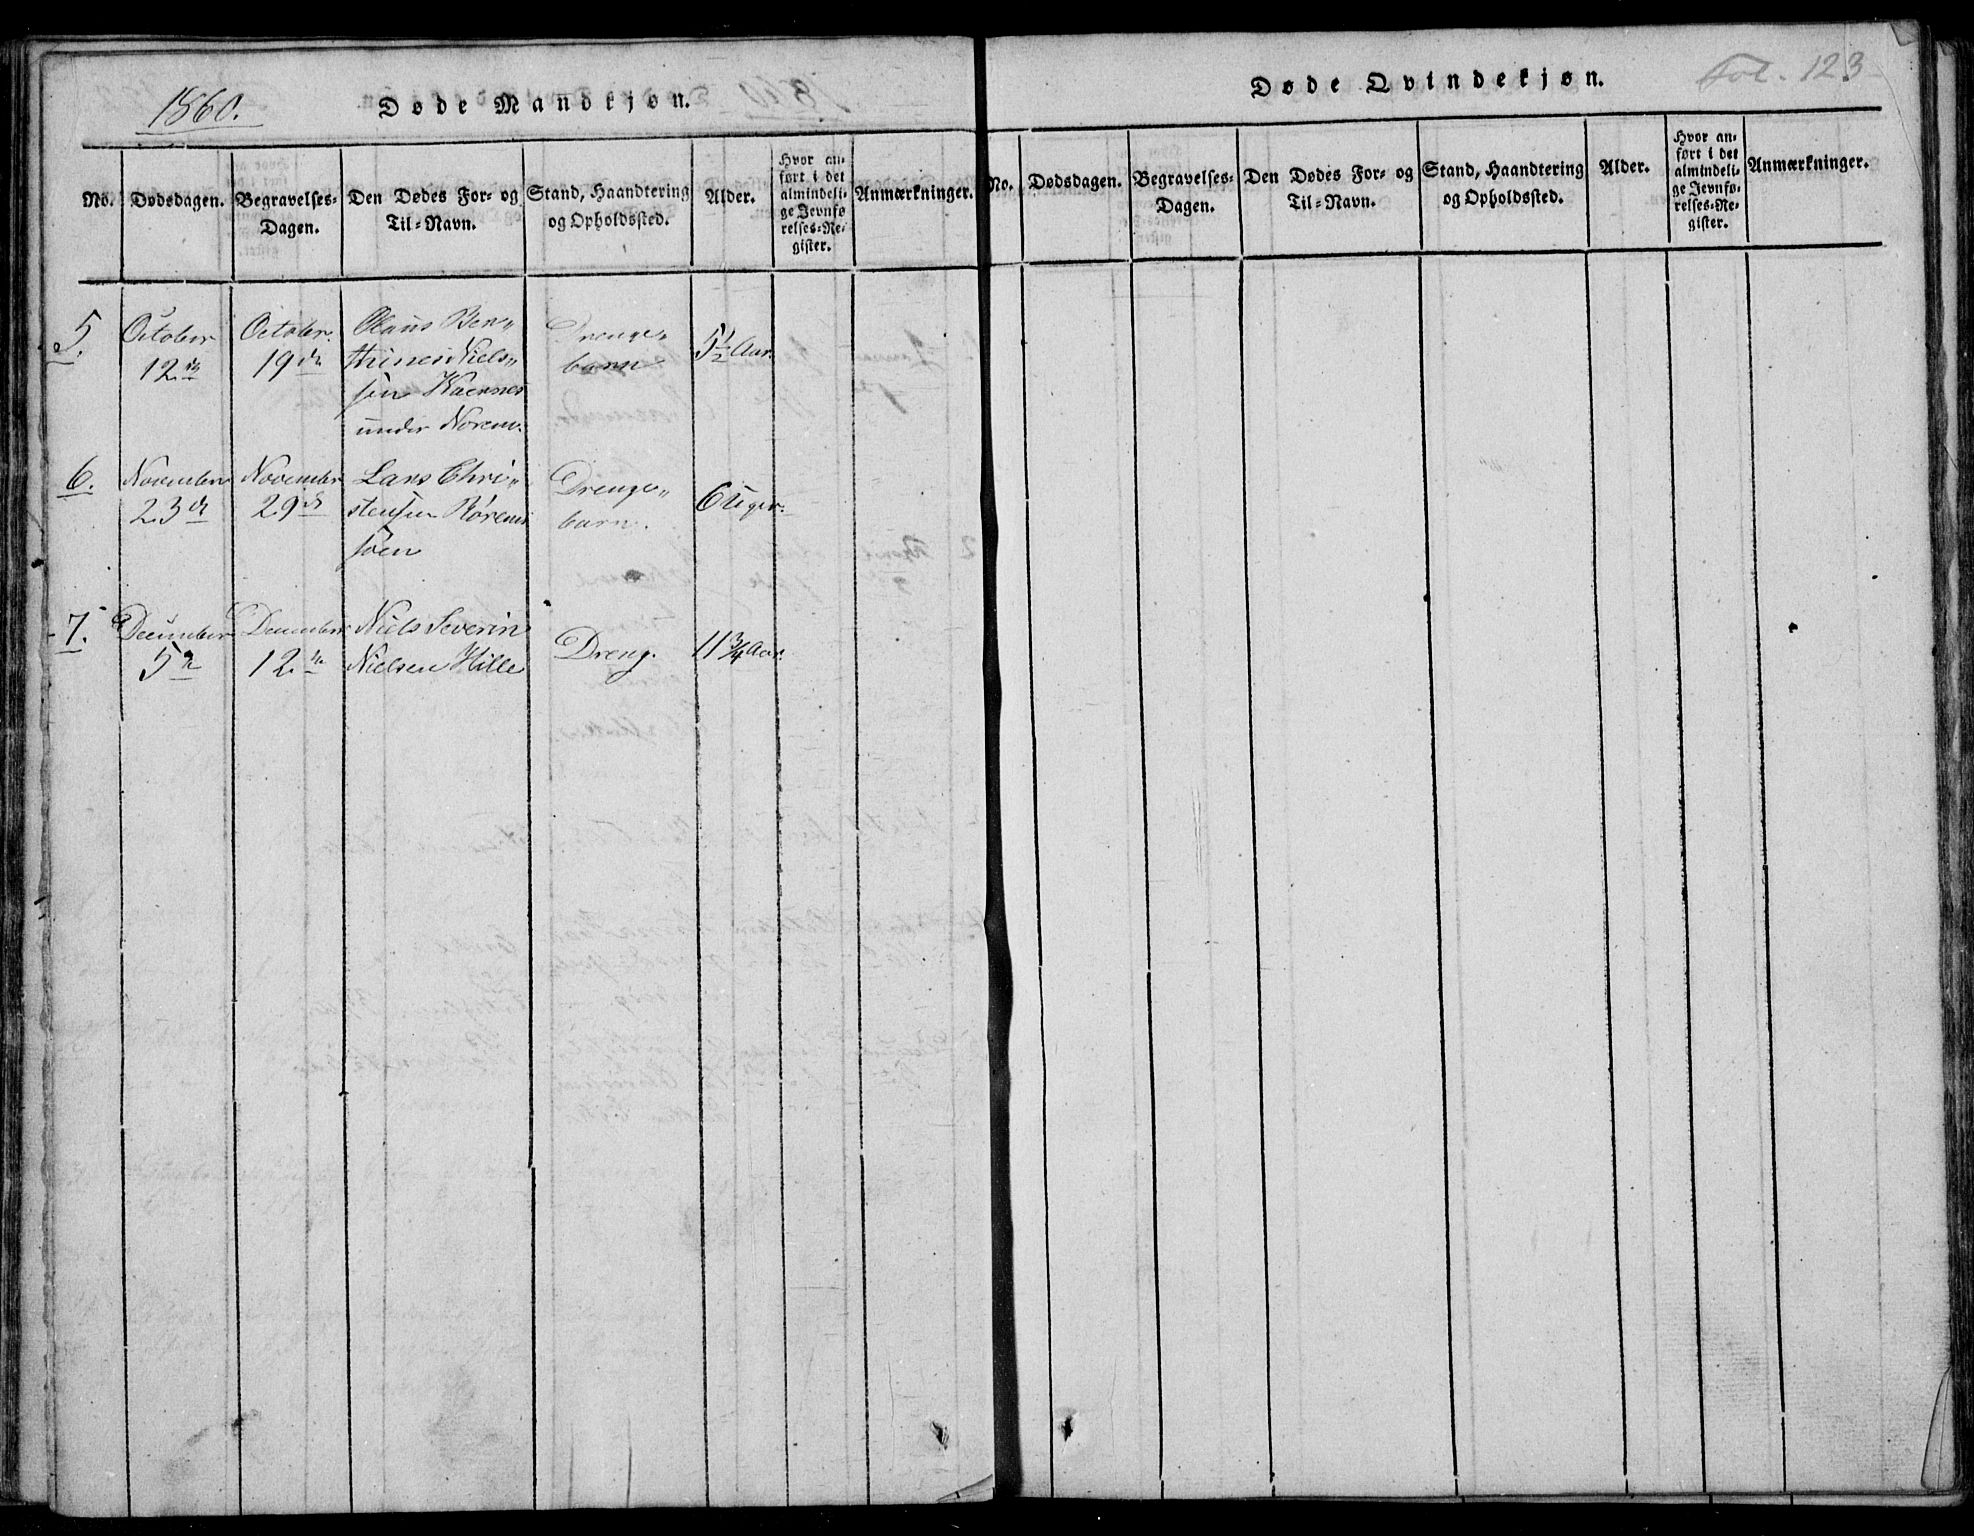 1860.
Døde Mandkjøn.
No.
Dødsdagen.
Begravelses-
Dagen.
Den Dødes For- og
Til-Navn.
Stand, Haandtering
og Opholdssted.
Alder.
Hvor an-
ført i det
almindeli-
ge Jevnfø
relses-Re-
gister.
Anmærkninger.
5.
October
12te
October
19de
Olaus Ben„
thines Niels„
sen
under Norem.
Drenge„
barn
5½ Aar.
6.
November
23de
November
29de
Lars Chri„
stensen
søen
Drenge„
barn.
6 Uger.
7.
December
5te
December
12te
Niels Severin
Nielsen Hille
Dreng.
11¾ Aar.
Døde Qvindekjøn.
Fol. 123
No.
Dødsdagen.
Begravelses-
Dagen.
Den Dødes For- og
Til-Navn.
Stand, Haandtering
og Opholdssted.
Alder.
Hvor an-
ført i det
almindeli-
ge Jevnfø-
relses-Re-
gister.
Anmærkninger.